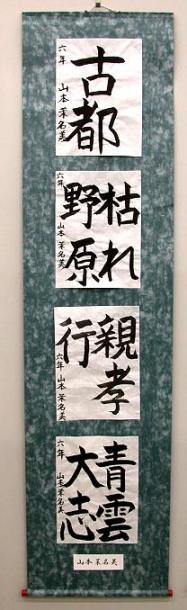 古都
六年 山本茉名美
枯れ
野原
六年 山本茉名美
親孝
行
六年 山本茉名美
青雲
大志
六年 山本茉名美
山本茉名美